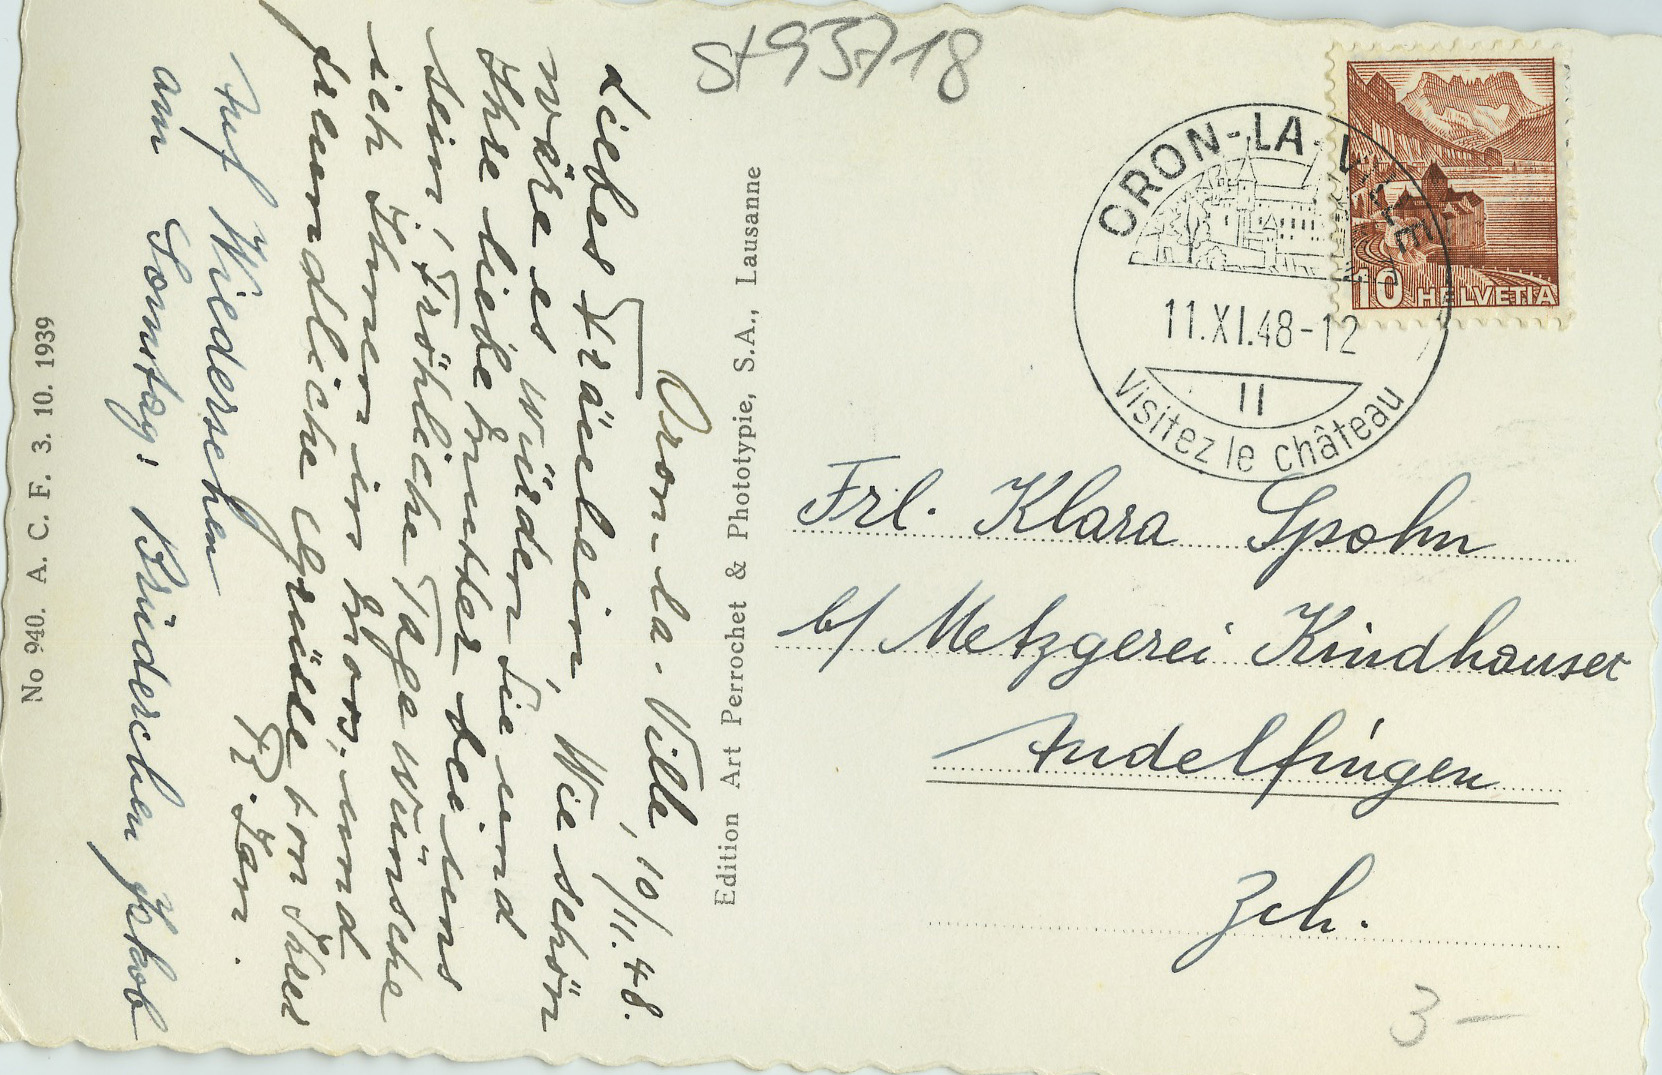 St 93718
ORON-LA-VILLE
11.XI.48-12
11
Visitez le château
10 HELVETIA
Oron-la-Ville, 10/11.48.
Liebes Fräulein, Wie schön
wäre es würden Sie und
Ihre liebe Mutter bei uns
sein! Fröhliche Tage wünsche
ich Ihnen in und
freundliche Grüsse von Ihrer
Fr. Zam.
Auf Wiedersehen
am Sonntag! Brüderchen Jakob
Edition Art Perrochet & Phototypie, S.A., Lausanne
No 940. A. C. F. 3. 10. 1939
Frl. Klara Spohn
b/ Metzgerei Kindhauser
Andelfingen
Zch.
3 –